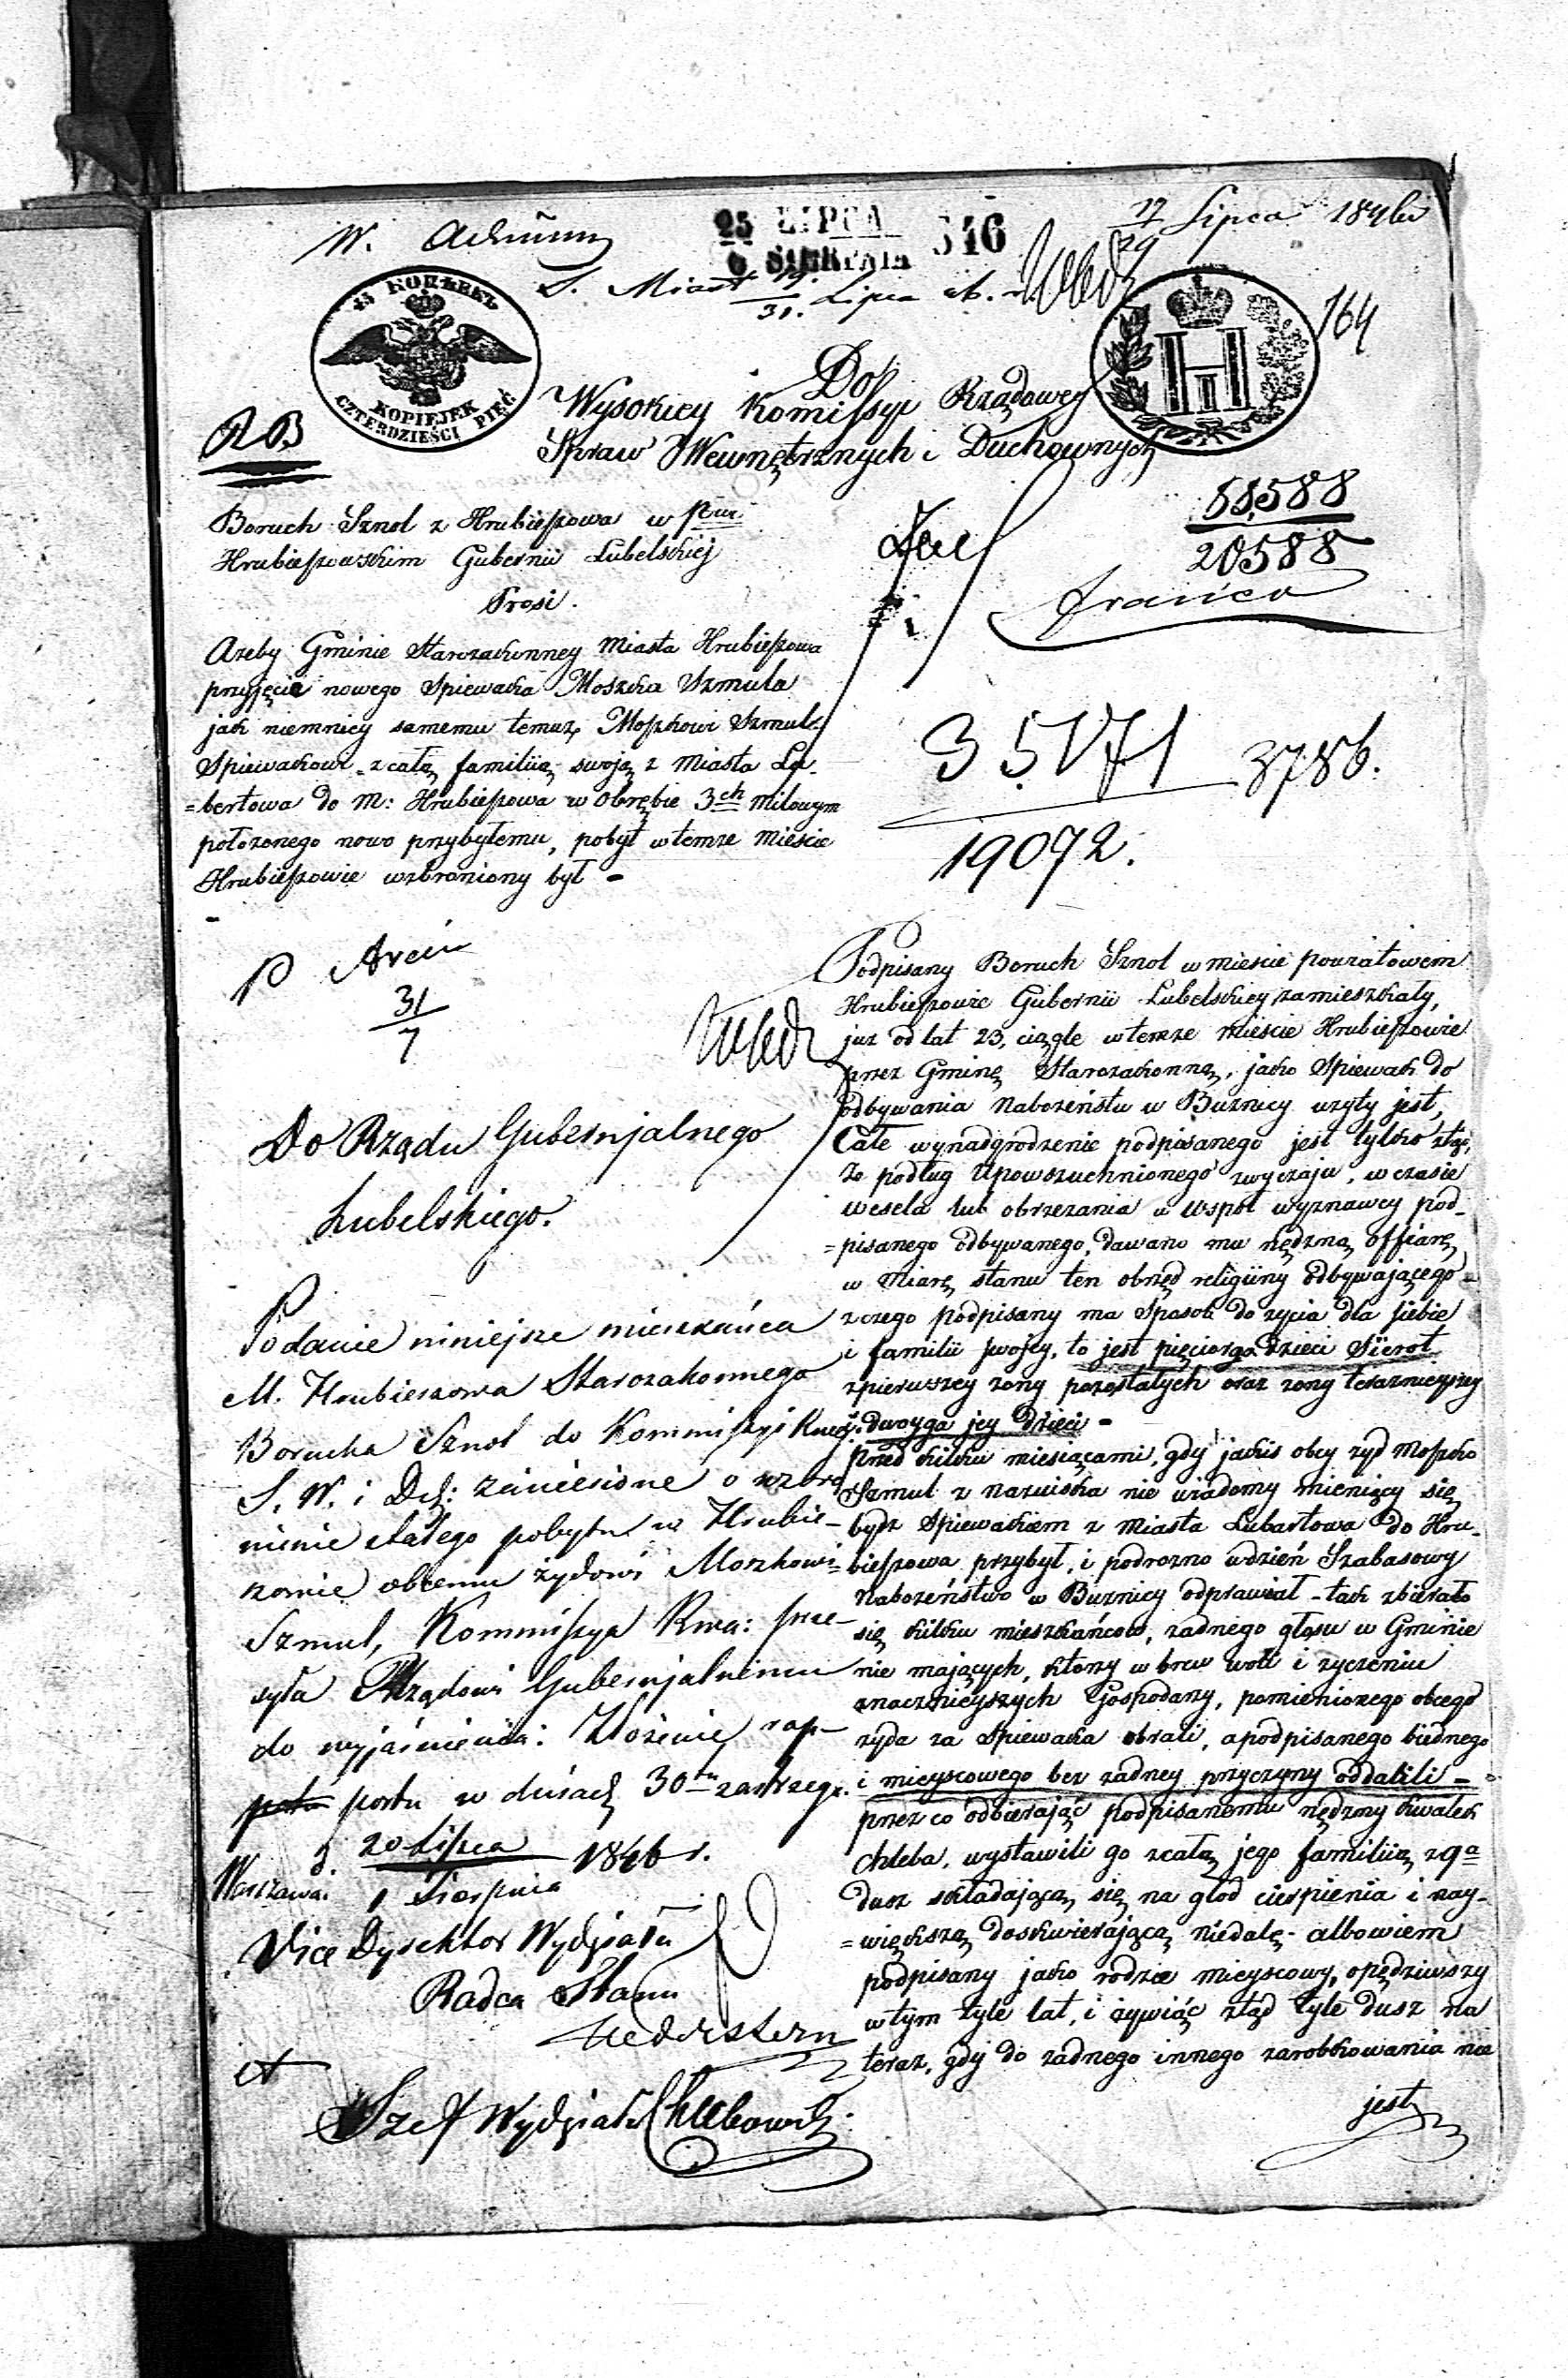 W.
25 LIPCA
6 SIERPNIA
17/29 Lipca 1846
S. Miast 19/31. Lipca
164
45 КОПѢЕКЪ
KOPIEJEK
CZTERDZIEŚCI PIĘĆ
Do
Wysokiey Kommissyi Rządowey
Spraw Wewnętrznych i Duchownych
58,588
20588
Franco
Boruch Sznol z Hrubieszowa w Ptcie
Hrubieszowskim Gubernii Lubelskiej
Prosi.
Azeby Gminie Starozakonney Miasta Hrubieszowa
przyjęcie nowego Spiewaka Moszka Szmula
jak niemniey samemu temuz, Moszkowi Szmul
Spiewakowi z całą familiią swoją z Miasta Lu-
=bertowa do M: Hrubieszowa w Obrębie 3ch Milowym
położonego nowo przybyłemu, pobyt w temze Mieście
Hrubieszowie wzbroniony był -
35171
3786.
19072.
31/7
Do Rządu Gubernjalnego
Lubelskiego.
Podanie niniejsze mieszkańca
M. Hrubieszowa Starozakonnego
Borucha Sznol do Kommissyi Rząd.
S. W. i D. zaniesione o wzbro
nienie stałego pobytu w Hrubie-
szowie obcemu żydowi Moszkowi
Szmul, Kommissya Rwa: prze-
syła Rządowi Gubernjalnemu
do wyjaśnienia: Złożenie rap-
portu w dniach 30tu zastrzega.
Warszawa d. 20 Lipca / 1 Sierpnia 1846 r.
Vice Dyrektor Wydziału
Radca Stanu
Szef Wydziału
Podpisany Boruch Sznol w mieście powiatowem
Hrubieszowie Gubernii Lubelskiey zamieszkały,
juz od lat 23, ciągle w temze mieście Hrubieszowie
przez Gminę Starozakonną, jako Spiewak do
odbywania Nabożeństw w Buznicy uzyty jest,
Całe wynadgrodzenie podpisanego jest tylko ztąd,
ze podług upowszechnionego zwyczaju, w czasie
wesela lub obrzezania u współ wyznawcy pod-
=pisanego odbywanego, dawano mu nędzną offiarę,
w Miarę stanu ten obrzęd religiiny odbywającego
z czego podpisany ma Sposób do zycia dla siebie
i familii swojey, to jest pięciorga Dzieci Sierot
z pierwszey zony pozostałych oraz zony terazniejszey
i dwoyga jey Dzieci -
przed kilku miesiącami, gdy jakis obcy zyd Moszko
Szmul z nazwiska nie wiadomy mieniący się
bydz Spiewakiem z Miasta Lubartowa do Hru-
=bieszowa przybył, i podrozno w dzień Szabasowy
Nabożeństwo w Buznicy odprawiał - tak zbierało
się kilku mieszkańców, zadnego głosu w Gminie
nie mających, którzy w brew woli i zyczeniu
znacznieyszych Gospodarzy, pomienionego obcego
zyda za Spiewaka obrali, a podpisanego biednego
i mieyscowego bez zadney przyczyny oddalili -
przez co odbierając podpisanemu nędzny kwałek
Chleba, wystawili go z całą jego familiią z 9a
Dusz składającą się na głód cierpienia i nay-
=większą doskwierającą niedolę - albowiem
podpisany jako rodzic mieyscowy, opędziwszy
w tym tyle lat, i zywiąc ztąd tyle Dusz na
teraz, gdy do zadnego innego zarobkowania nie
jest